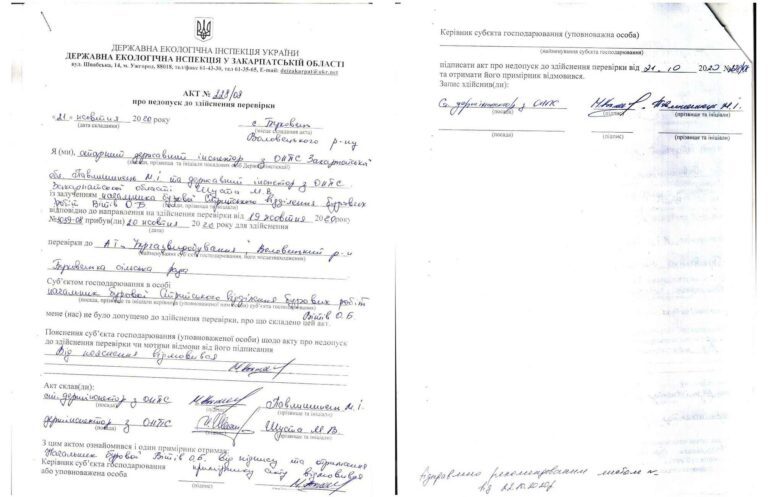 ДЕРЖАВНА ЕКОЛОГІЧНА ІНСПЕКЦІЯ УКРАЇНИ
ДЕРЖАВНА ЕКОЛОГІЧНА ІНСПЕКЦІЯ У ЗАКАРПАТСЬКІЙ ОБЛАСТІ
вул. Швабська, 14, м. Ужгород, 88018, тел/факс 61-43-30, тел 61-35-65, E-mail: deizakarpat@ukr.net
АКТ № 223/08
про недопуск до здійснення перевірки
«21» жовтня 2020 року с. Буковець
(дата складання) (місце складання акта)
Воловецького р-ну
Я (ми), старший державний інспектор з ОНПС Закарпатської
(посади, прізвище та ініціали посадових осіб Держекоінспекції)
обл. Павлишинець М.І. та державний інспектор з ОНПС
Закарпатської області Шуста М.В.
із залученням начальника бурової Стрийського відділення бурових
(посади, прізвище та ініціали)
робіт Вітів О.Б.
відповідно до направлення на здійснення перевірки від 19 жовтня 2020 року
№ прибув(ли) 20 жовтня 2020 року для здійснення
(дата)
перевірки до АТ "Укргазвидобування", Воловецький р-н
(найменування суб'єкта господарювання, його місцезнаходження)
Буковецька сільська рада
Суб'єктом господарювання в особі
начальник бурової Стрийського відділення бурових робіт
(посада, прізвище та ініціали керівника (уповноваженої особи) суб'єкта господарювання)
Вітів О.Б.
мене (нас) не було допущено до здійснення перевірки, про що складено цей акт.
Пояснення суб'єкта господарювання (уповноваженої особи) щодо акту про недопуск
до здійснення перевірки чи мотиви відмови від його підписання
Від пояснення відмовився
Акт склав(ли):
ст. держінспектор з ОНПС Павлишинець М.І.
(посада) (підпис) (прізвище та ініціали)
держінспектор з ОНПС Шуста М.В.
(посада) (підпис) (прізвище та ініціали)
З цим актом ознайомився і один примірник отримав:
Начальник бурової Вітів О.Б. від підпису та отримання
Керівник суб'єкта господарювання примірнику акту відмовився
або уповноважена особа (підпис)
Керівник суб'єкта господарювання (уповноважена особа)
(найменування суб'єкта господарювання)
підписати акт про недопуск до здійснення перевірки від 21.10 2020 № 223/08
та отримати його примірник відмовився.
Запис здійснив(ли):
Ст. держінспектор з ОНПС Павлишинець М.І.
(посади) (підпис) (прізвище та ініціали)
(посада) (підпис) (прізвище та ініціали)
Відправлено рекомендованим листом
від 22.10.2020р.